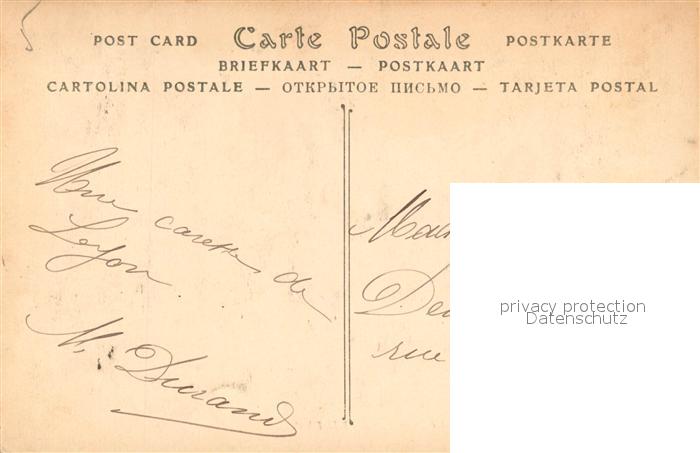 POST CARD Carte Postale POSTKARTE
BRIEFKAART — POSTKAART
CARTOLINA POSTALE — ОТКРЫТОЕ ПИСЬМО — TARJETA POSTAL
Une caresse de
Lyon
M. Durand
rue
privacy protection
Datenschutz